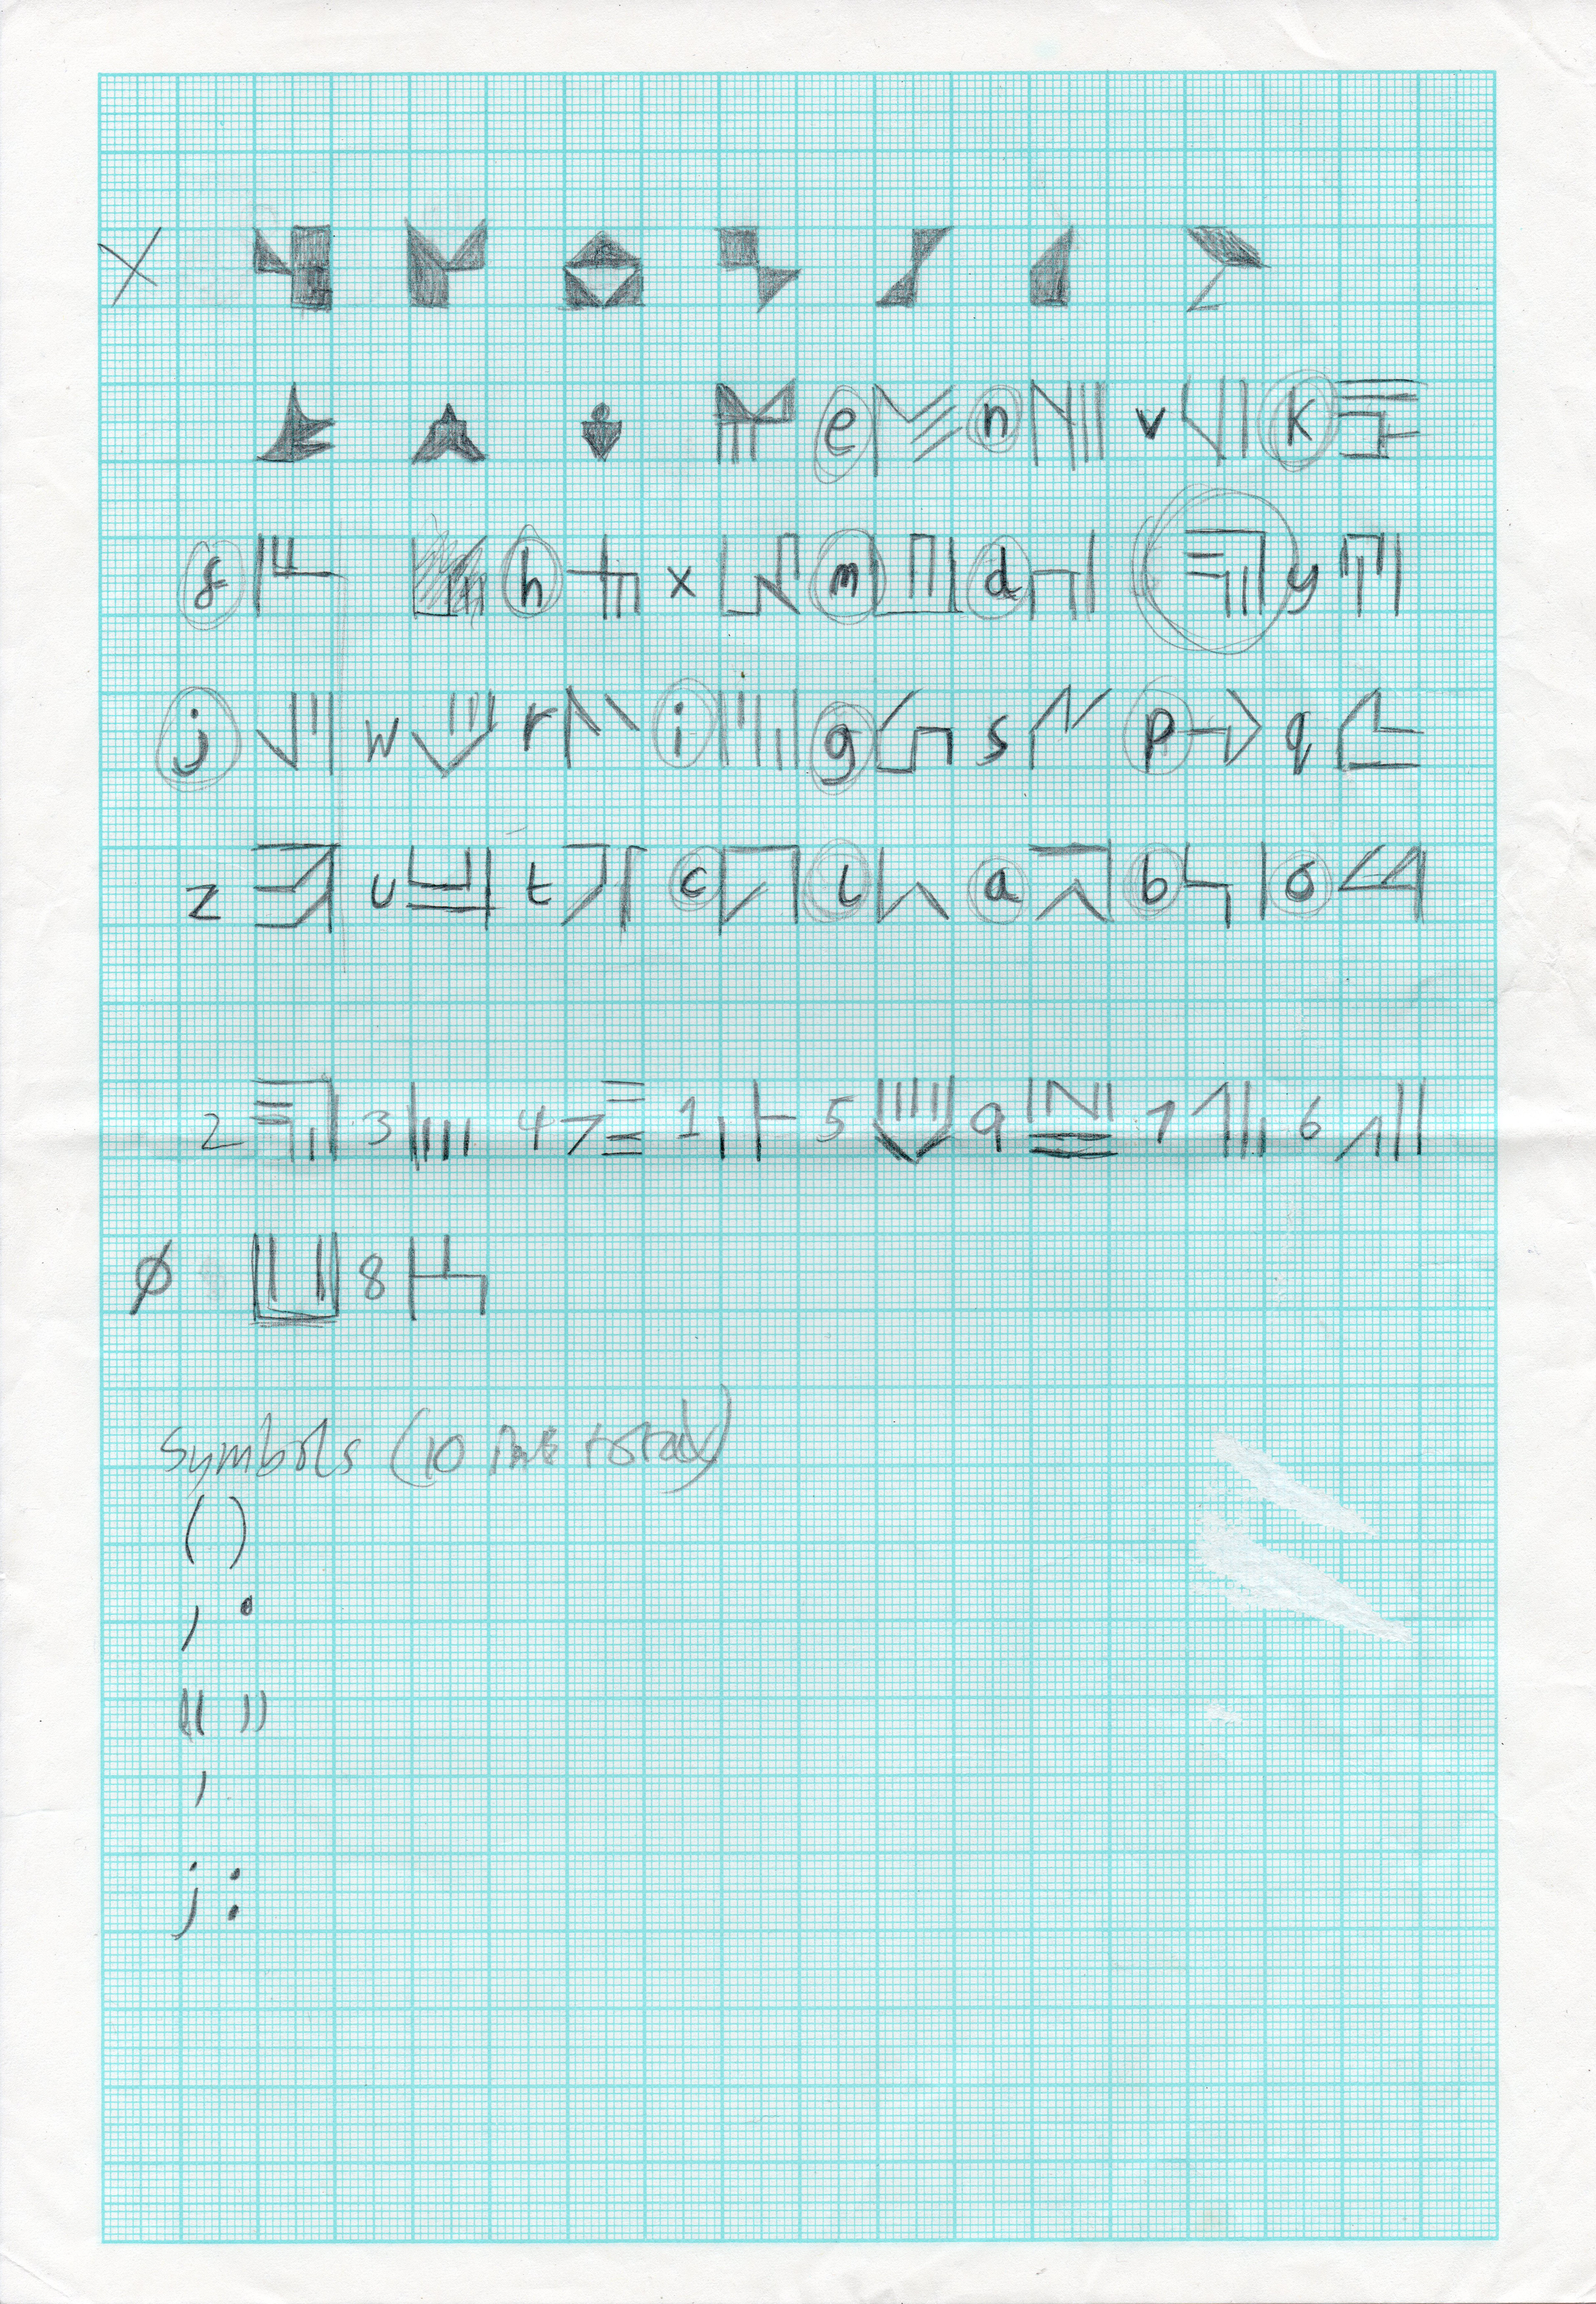 X
e n v k
f h x m d y
j w r i g s p q
z u t c l a b o
2 3 4 1 5 9 7 6
Ø 8
Symbols (10 total)
( )
, .
" "
'
; :